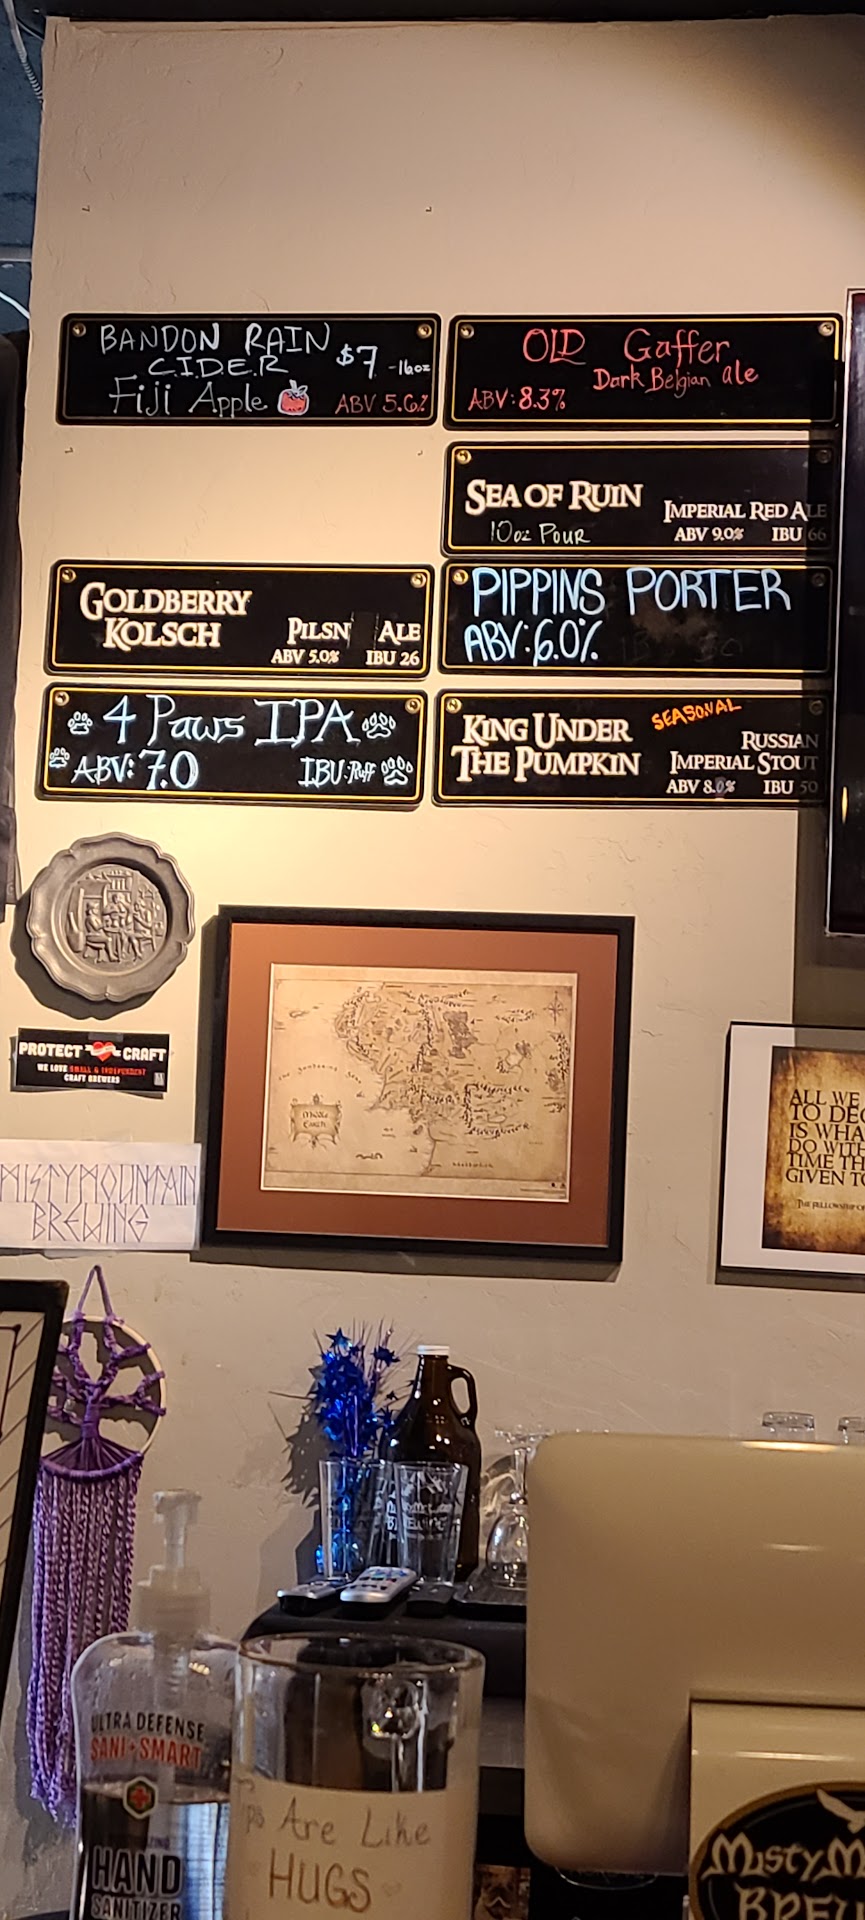 BANDON RAIN
CIDER
$7 -16oz
Fiji Apple ABV 5.6%
OLD Gaffer
Dark Belgian ale
ABV: 8.3%
SEA OF RUIN
10oz POUR
IMPERIAL RED ALE
ABV 9.0% IBU 66
GOLDBERRY
KOLSCH
PILSN ALE
ABV 5.0% IBU 26
PIPPINS PORTER
ABV: 6.0%
4 Paws IPA
ABV: 7.0 IBU: Ruff
KING UNDER
THE PUMPKIN
SEASONAL
RUSSIAN
IMPERIAL STOUT
ABV 8.0% IBU 50
PROTECT CRAFT
WE LOVE SMALL & INDEPENDENT
CRAFT BREWERS
MISTYMOUNTAIN
BREWING
The Sundering Seas
Middle
Earth
ALL WE
TO DEC
IS WHA
DO WITH
TIME TH
GIVEN TO
THE FELLOWSHIP OF
BREWING
ULTRA DEFENSE
SANI+SMART
HAND
SANITIZER
Tips Are Like
HUGS
MISTY M
BREW